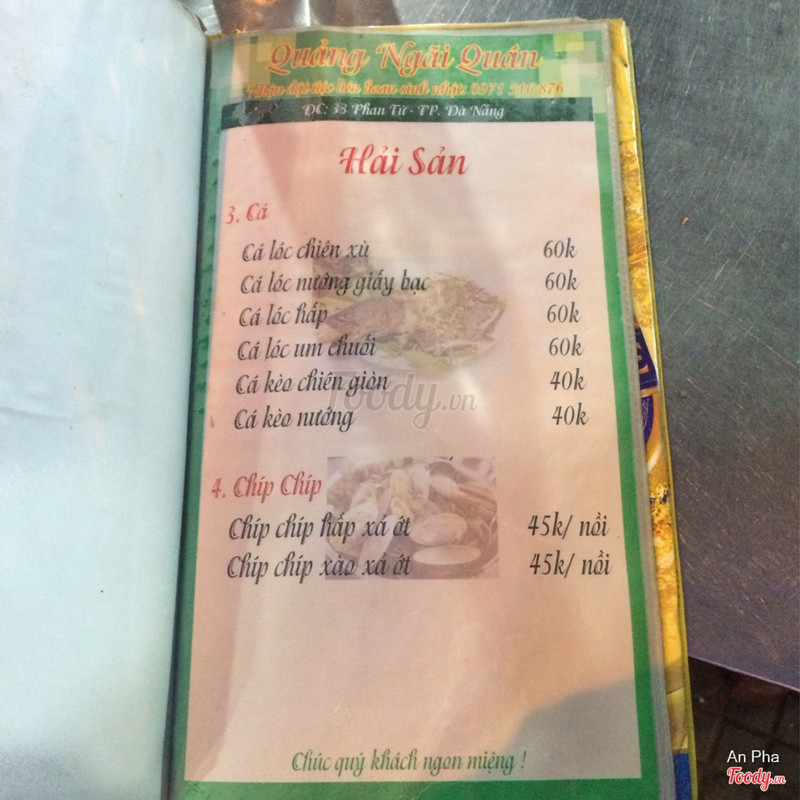 Quảng Ngãi Quán
Nhận đặt tiệc liên hoan sinh nhật: 0971 506 876
ĐC: 33 Phan Tứ - TP. Đà Nẵng
Hải Sản
3. Cá
Cá lóc chiên xù 60k
Cá lóc nướng giấy bạc 60k
Cá lóc hấp 60k
Cá lóc um chuối 60k
Cá kèo chiên giòn 40k
Cá kèo nướng 40k
Foody.vn
4. Chíp Chíp
Chíp chíp hấp xả ớt 45k/ nồi
Chíp chíp xào xả ớt 45k/ nồi
Chúc quý khách ngon miệng !
An Pha
Foody.vn